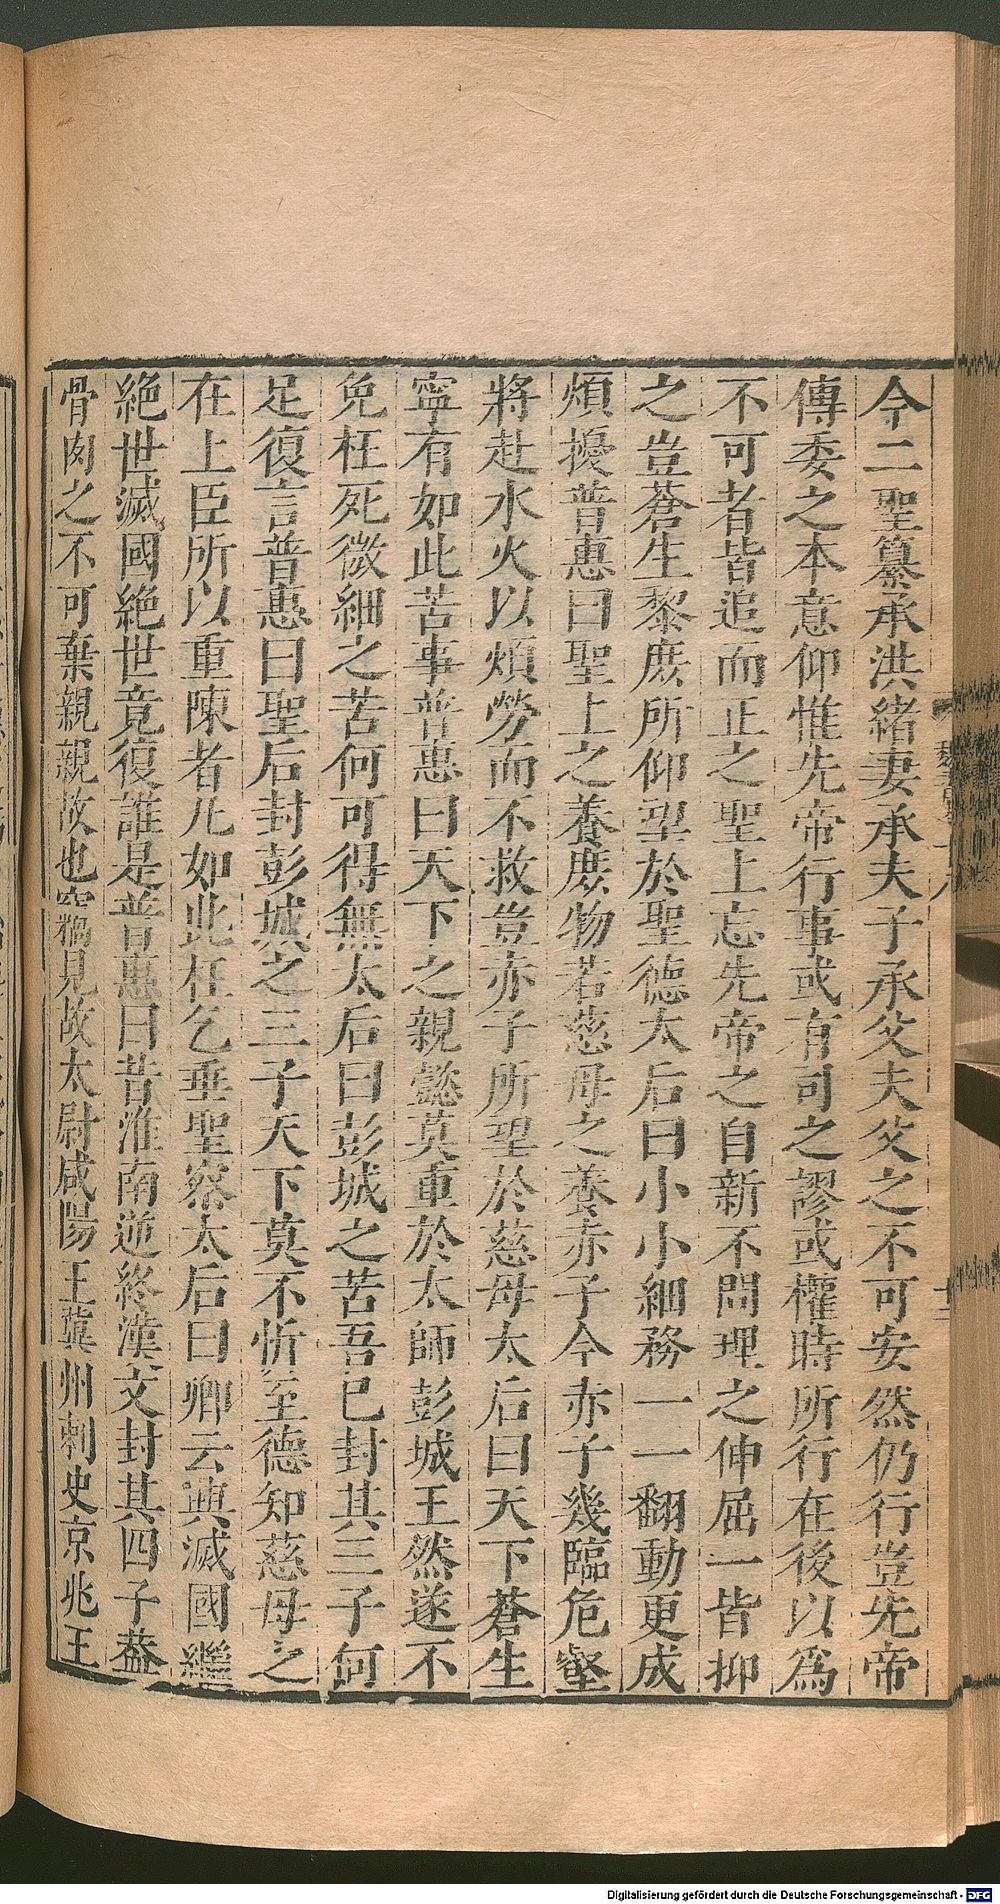 今二聖纂承洪緒妻承夫子承父夫父之不可安然仍行豈先帝
傳委之本意仰惟先帝行事或有司之謬或權時所行在後以為
不可者皆追而正之聖上忘先帝之自新不問理之伸屈一皆抑
之豈蒼生黎庶所仰望於聖德太后曰小小細務一一翻動更成
煩擾普惠曰聖上之養庶物若慈母之養赤子今赤子幾臨危壑
將赴水火以煩勞而不救豈赤子所望於慈母太后曰天下蒼生
寧有如此苦事普惠曰天下之親懿莫重於太師彭城王然遂不
免枉死微細之苦何可得無太后曰彭城之苦吾已封其三子何
足復言普惠曰聖后封彭城之三子天下莫不忻至德知慈母之
在上臣所以重陳者凡如此枉乞垂聖察太后曰卿云興滅國繼
絶世滅國絶世竟復誰是普惠曰昔淮南逆終漢文封其四子葢
骨肉之不可棄親親故也竊見故太尉咸陽王冀州刺史京兆王
十八
十二
Digitalisierung gefördert durch die Deutsche Forschungsgemeinschaft - DFG